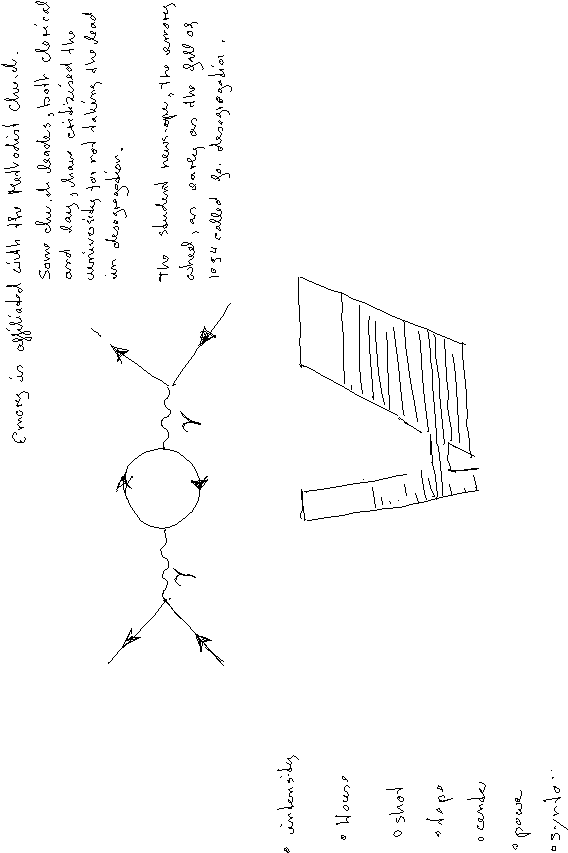 Emory is affiliated with the Methodist Church.
Some church leaders, both clerical
and lay, have critizised the
university for not taking the lead
in desegregation.
The student newspaper, the emory
wheel, as early as the fall of
1954 called for desegregation.
γ
γ
• intensity
• House
• shot
• tape
• center
• power